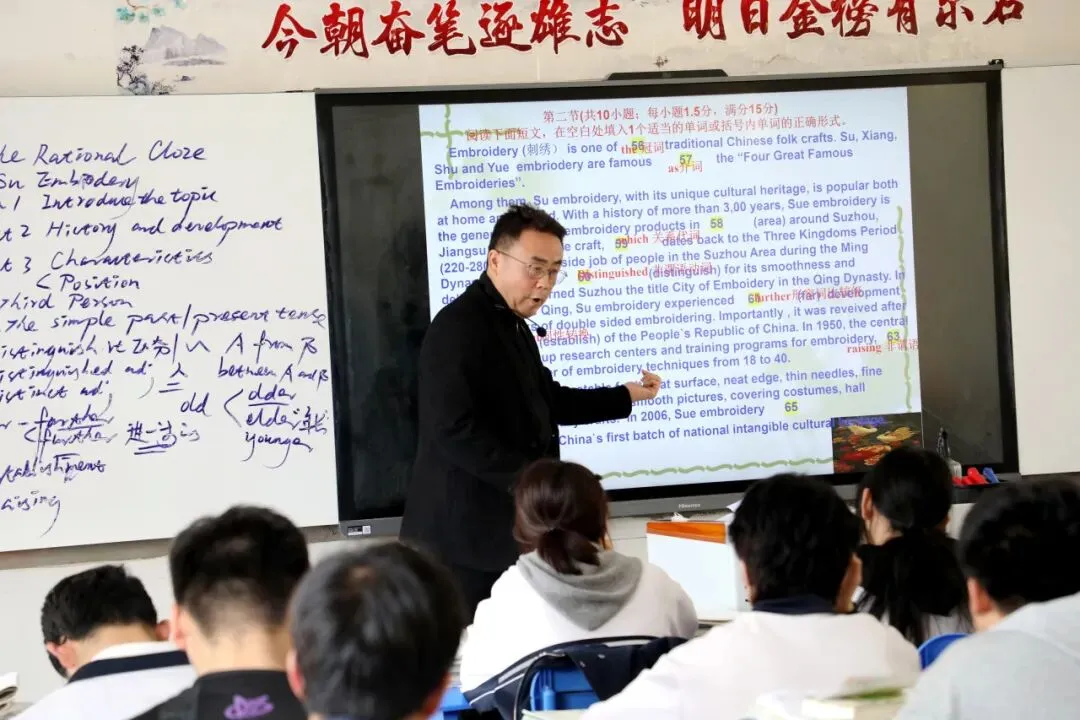 今朝奋笔逐雄志 明日金榜有乐名
The Rational Cloze
Su Embrodery
1 Introduce the topic
2 History and development
3 Characteristics
Position
Third Person
The simple past/present tense
distinguish A from B
between A and B
distinguished adj
distinct adj
old
older
elder
younger
farther
further
进一步的
raising
第二节(共10小题;每小题1.5分,满分15分)
阅读下面短文,在空白处填入1个适当的单词或括号内单词的正确形式。
Embroidery (刺绣) is one of 56 the冠词 traditional Chinese folk crafts. Su, Xiang,
Shu and Yue embriodery are famous 57 as介词 the “Four Great Famous
Embroideries”.
Among them, Su embroidery, with its unique cultural heritage, is popular both
at home. With a history of more than 3,00 years, Sue embroidery is
the embroidery products in 58 (area) around Suzhou,
Jiangsu craft, 59 which 关系代词 dates back to the Three Kingdoms Period
(220-280 side job of people in the Suzhou Area during the Ming
60 distinguished (distinguish) for its smoothness and
Suzhou the title City of Emboidery in the Qing Dynasty. In
Qing, Su embroidery experienced further (far) development
of double sided embroidering. Importantly , it was reveived after
(establish) of the People`s Republic of China. In 1950, the central
up research centers and training programs for embroidery, 63
raising 非谓语
of embroidery techniques from 18 to 40.
surface, neat edge, thin needles, fine
smooth pictures, covering costumes, hall
in 2006, Sue embroidery 65
China`s first batch of national intangible cultural
Hisense